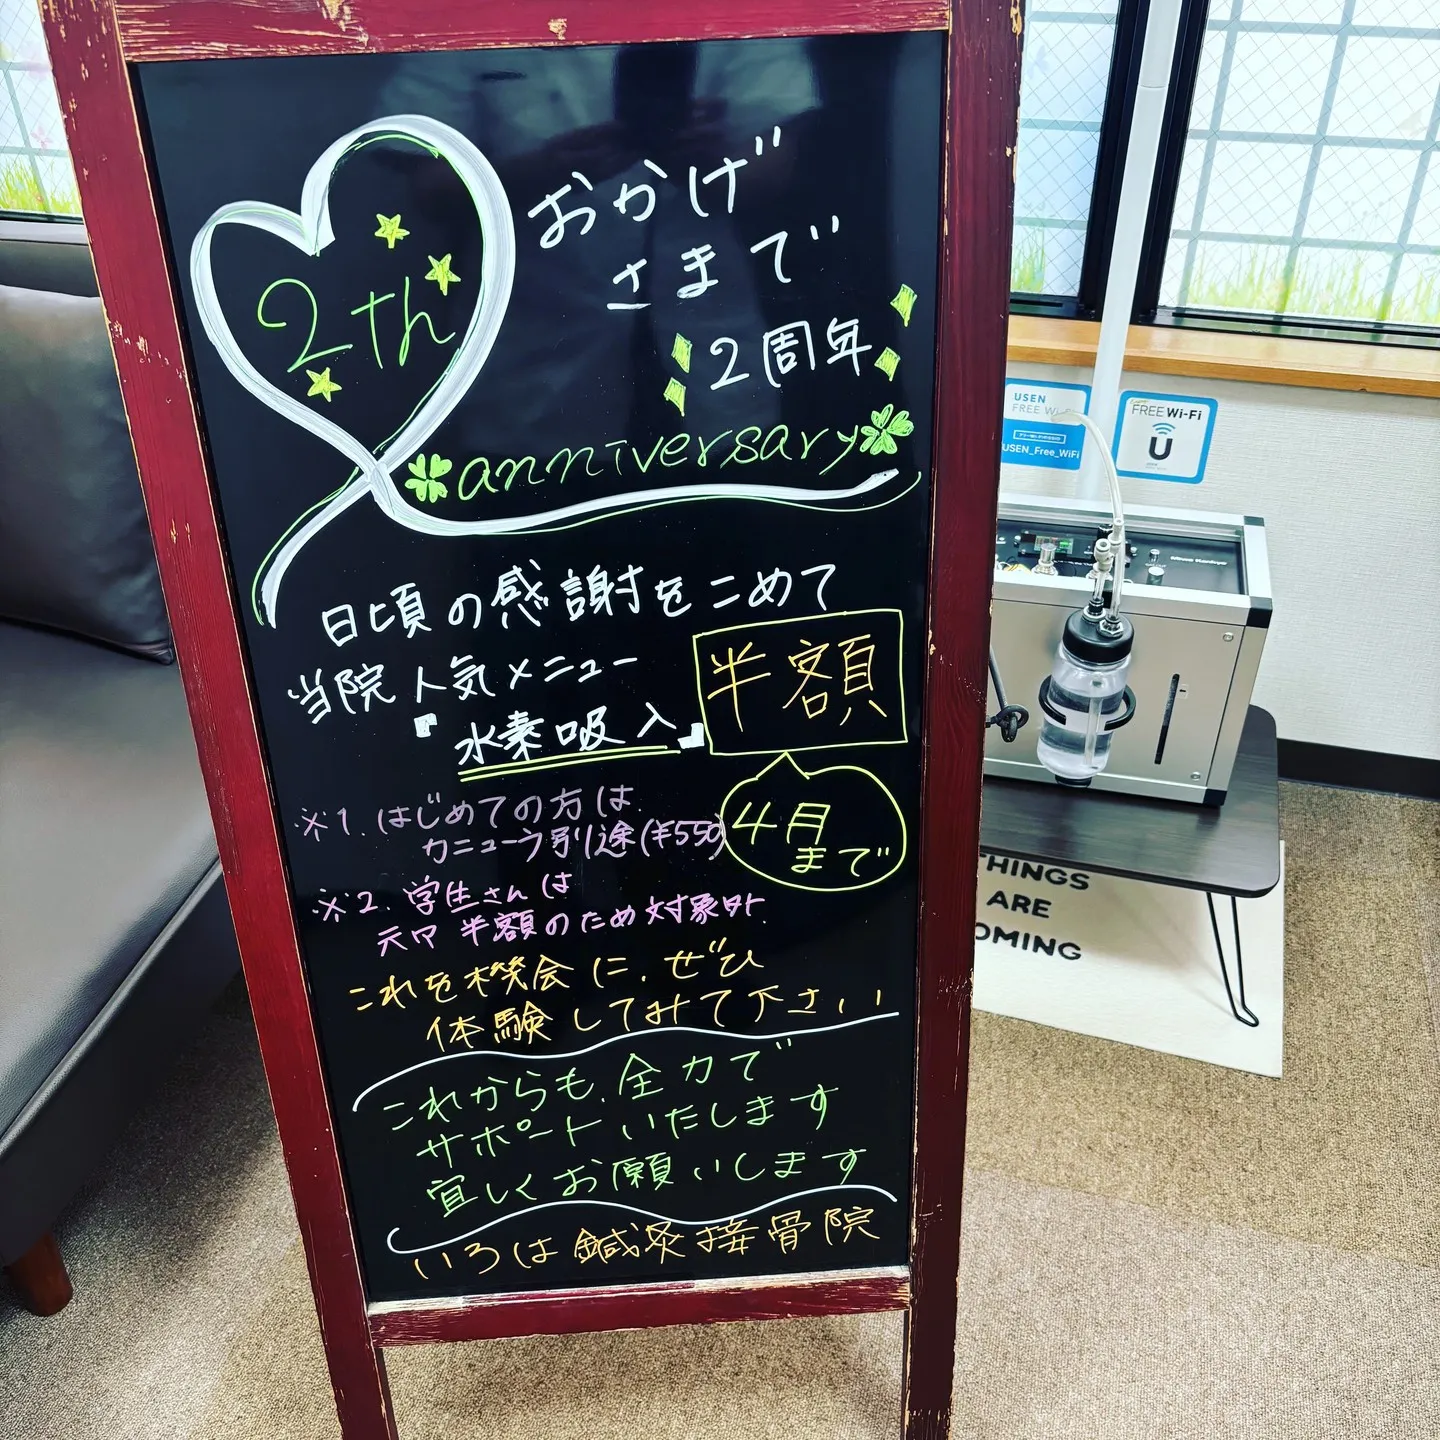 2th
おかげ
さまで
2周年
anniversary
日頃の感謝をこめて
当院人気メニュー
『水素吸入』
半額
4月
まで
※1. はじめての方は
カニューラ別途(¥550)
※2. 学生さんは
元々半額のため対象外
これを機会に、ぜひ
体験してみて下さい
これからも、全力で
サポートいたします
宜しくお願いします
いろは鍼灸接骨院
USEN
FREE Wi-Fi
USEN_Free_WiFi
FREE Wi-Fi
U
THINGS
ARE
COMING